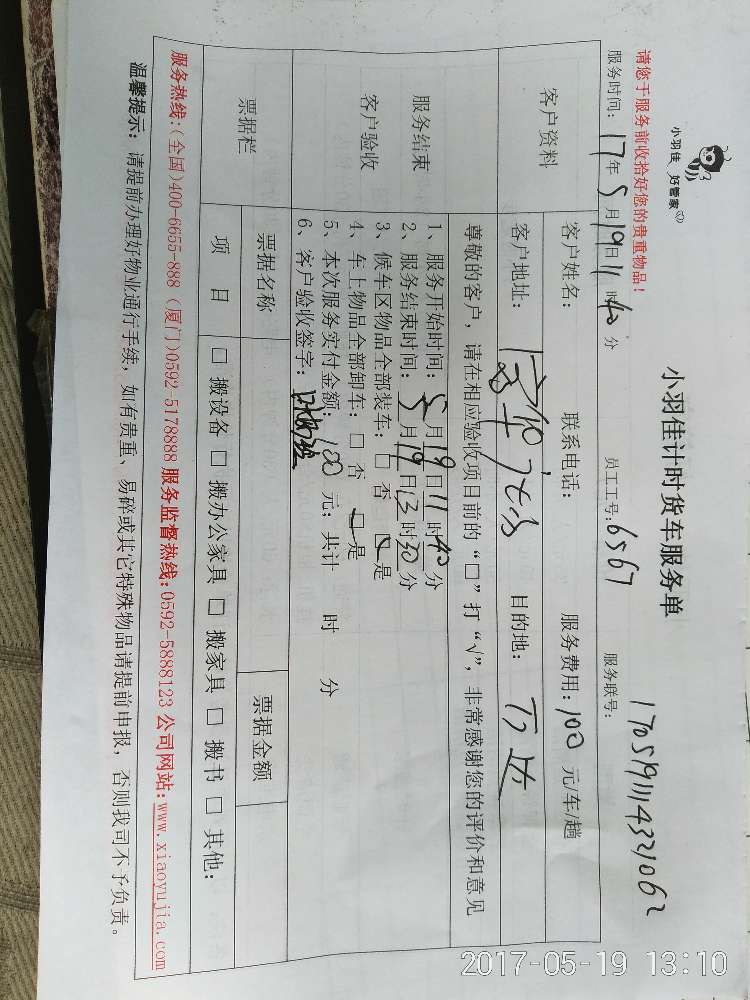 小羽佳 好管家
小羽佳计时货车服务单
1705191114321062
请您于服务前收拾好您的贵重物品！
服务时间：17年5月19日11时40分 员工工号：6567 服务联号：
客户资料
客户姓名： 联系电话： 服务费用：100元/车/趟
客户地址： 目的地：
尊敬的客户，请在相应验收项目前的“□”打“√”，非常感谢您的评价和意见
服务结束
客户验收
1、服务开始时间：5月19日11时40分
2、服务结束时间：5月19日13时30分
3、候车区物品全部装车：□否 ☑是
4、车上物品全部卸车：□否 ☑是
5、本次服务实付金额：100元；共计 时 分
6、客户验收签字：
票据栏
票据名称 票据金额
项目 □搬设备 □搬办公家具 □搬家具 □搬书 □其他：
服务热线：(全国)400-6655-888 (厦门)0592-5178888 服务监督热线：0592-5888123 公司网站：www.xiaoyujia.com
温馨提示：请提前办理好物业通行手续，如有贵重、易碎或其它特殊物品请提前申报，否则我司不予负责。
2017-05-19 13:10